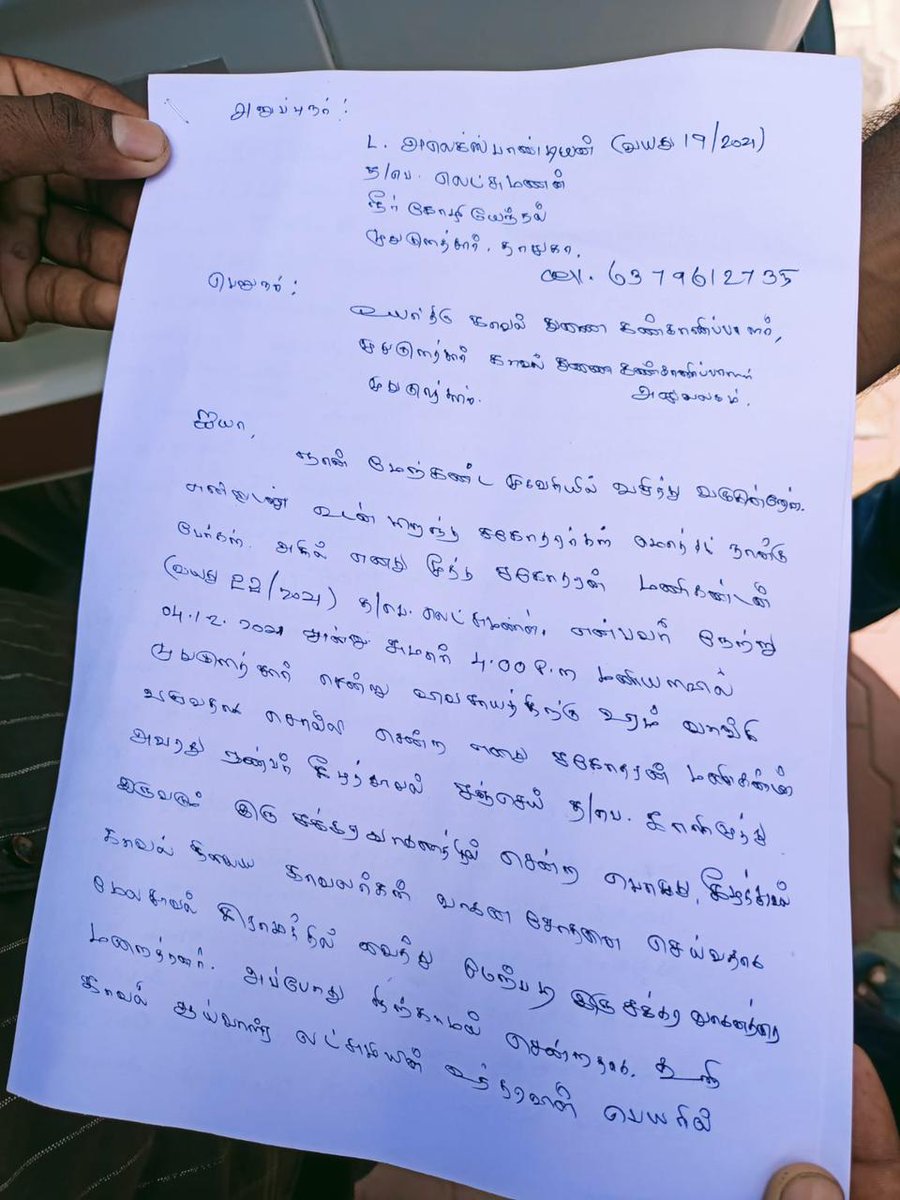 அனுப்புநர்:
L. அலெக்ஸ்பாண்டியன் (வயது 19/2021)
த/பெ. லெட்சுமணன்
நீர் கோழியேந்தல்
முதுகுளத்தூர், தாலுகா.
cell. 6379612735
பெறுநர்:
உயர்திரு காவல் துணை கண்காணிப்பாளர்,
முதுகுளத்தூர் காவல் துணை கண்காணிப்பாளர்
முதுகுளத்தூர். அலுவலகம்.
ஐயா,
நான் மேற்கண்ட முகவரியில் வசித்து வருகின்றேன்.
என்னுடன் உடன் பிறந்த சகோதரர்கள் மொத்தம் நான்கு
பேர்கள். அதில் எனது மூத்த சகோதரன் மணிகண்டன்
(வயது 22/2021) த/பெ. லெட்சுமணன். என்பவர் நேற்று
04.12.2021 அன்று சுமார் 4:00 P.m மணியளவில்
முதுகுளத்தூர் சென்று விவசாயத்திற்கு உரம் வாங்கி
வருவதாக சொல்லி சென்ற எனது சகோதரன் மணிகண்டன்
அவரது நண்பர் கீழத்தூவல் சஞ்செய் த/பெ. காளிமுத்து
இருவரும் இரு சக்கர வாகனத்தில் சென்ற பொழுது, கீழத்தூவல்
காவல் நிலைய காவலர்கள் வாகன சோதனை செய்வதாக
மேலதூவல் கிராமத்தில் வைத்து மேற்படி இரு சக்கர வாகனத்தை
மறைத்தனர். அப்போது நிற்காமல் சென்றதாக. உதவி
காவல் ஆய்வாளர் லட்சுமியின் உத்தரவின் பெயரில்